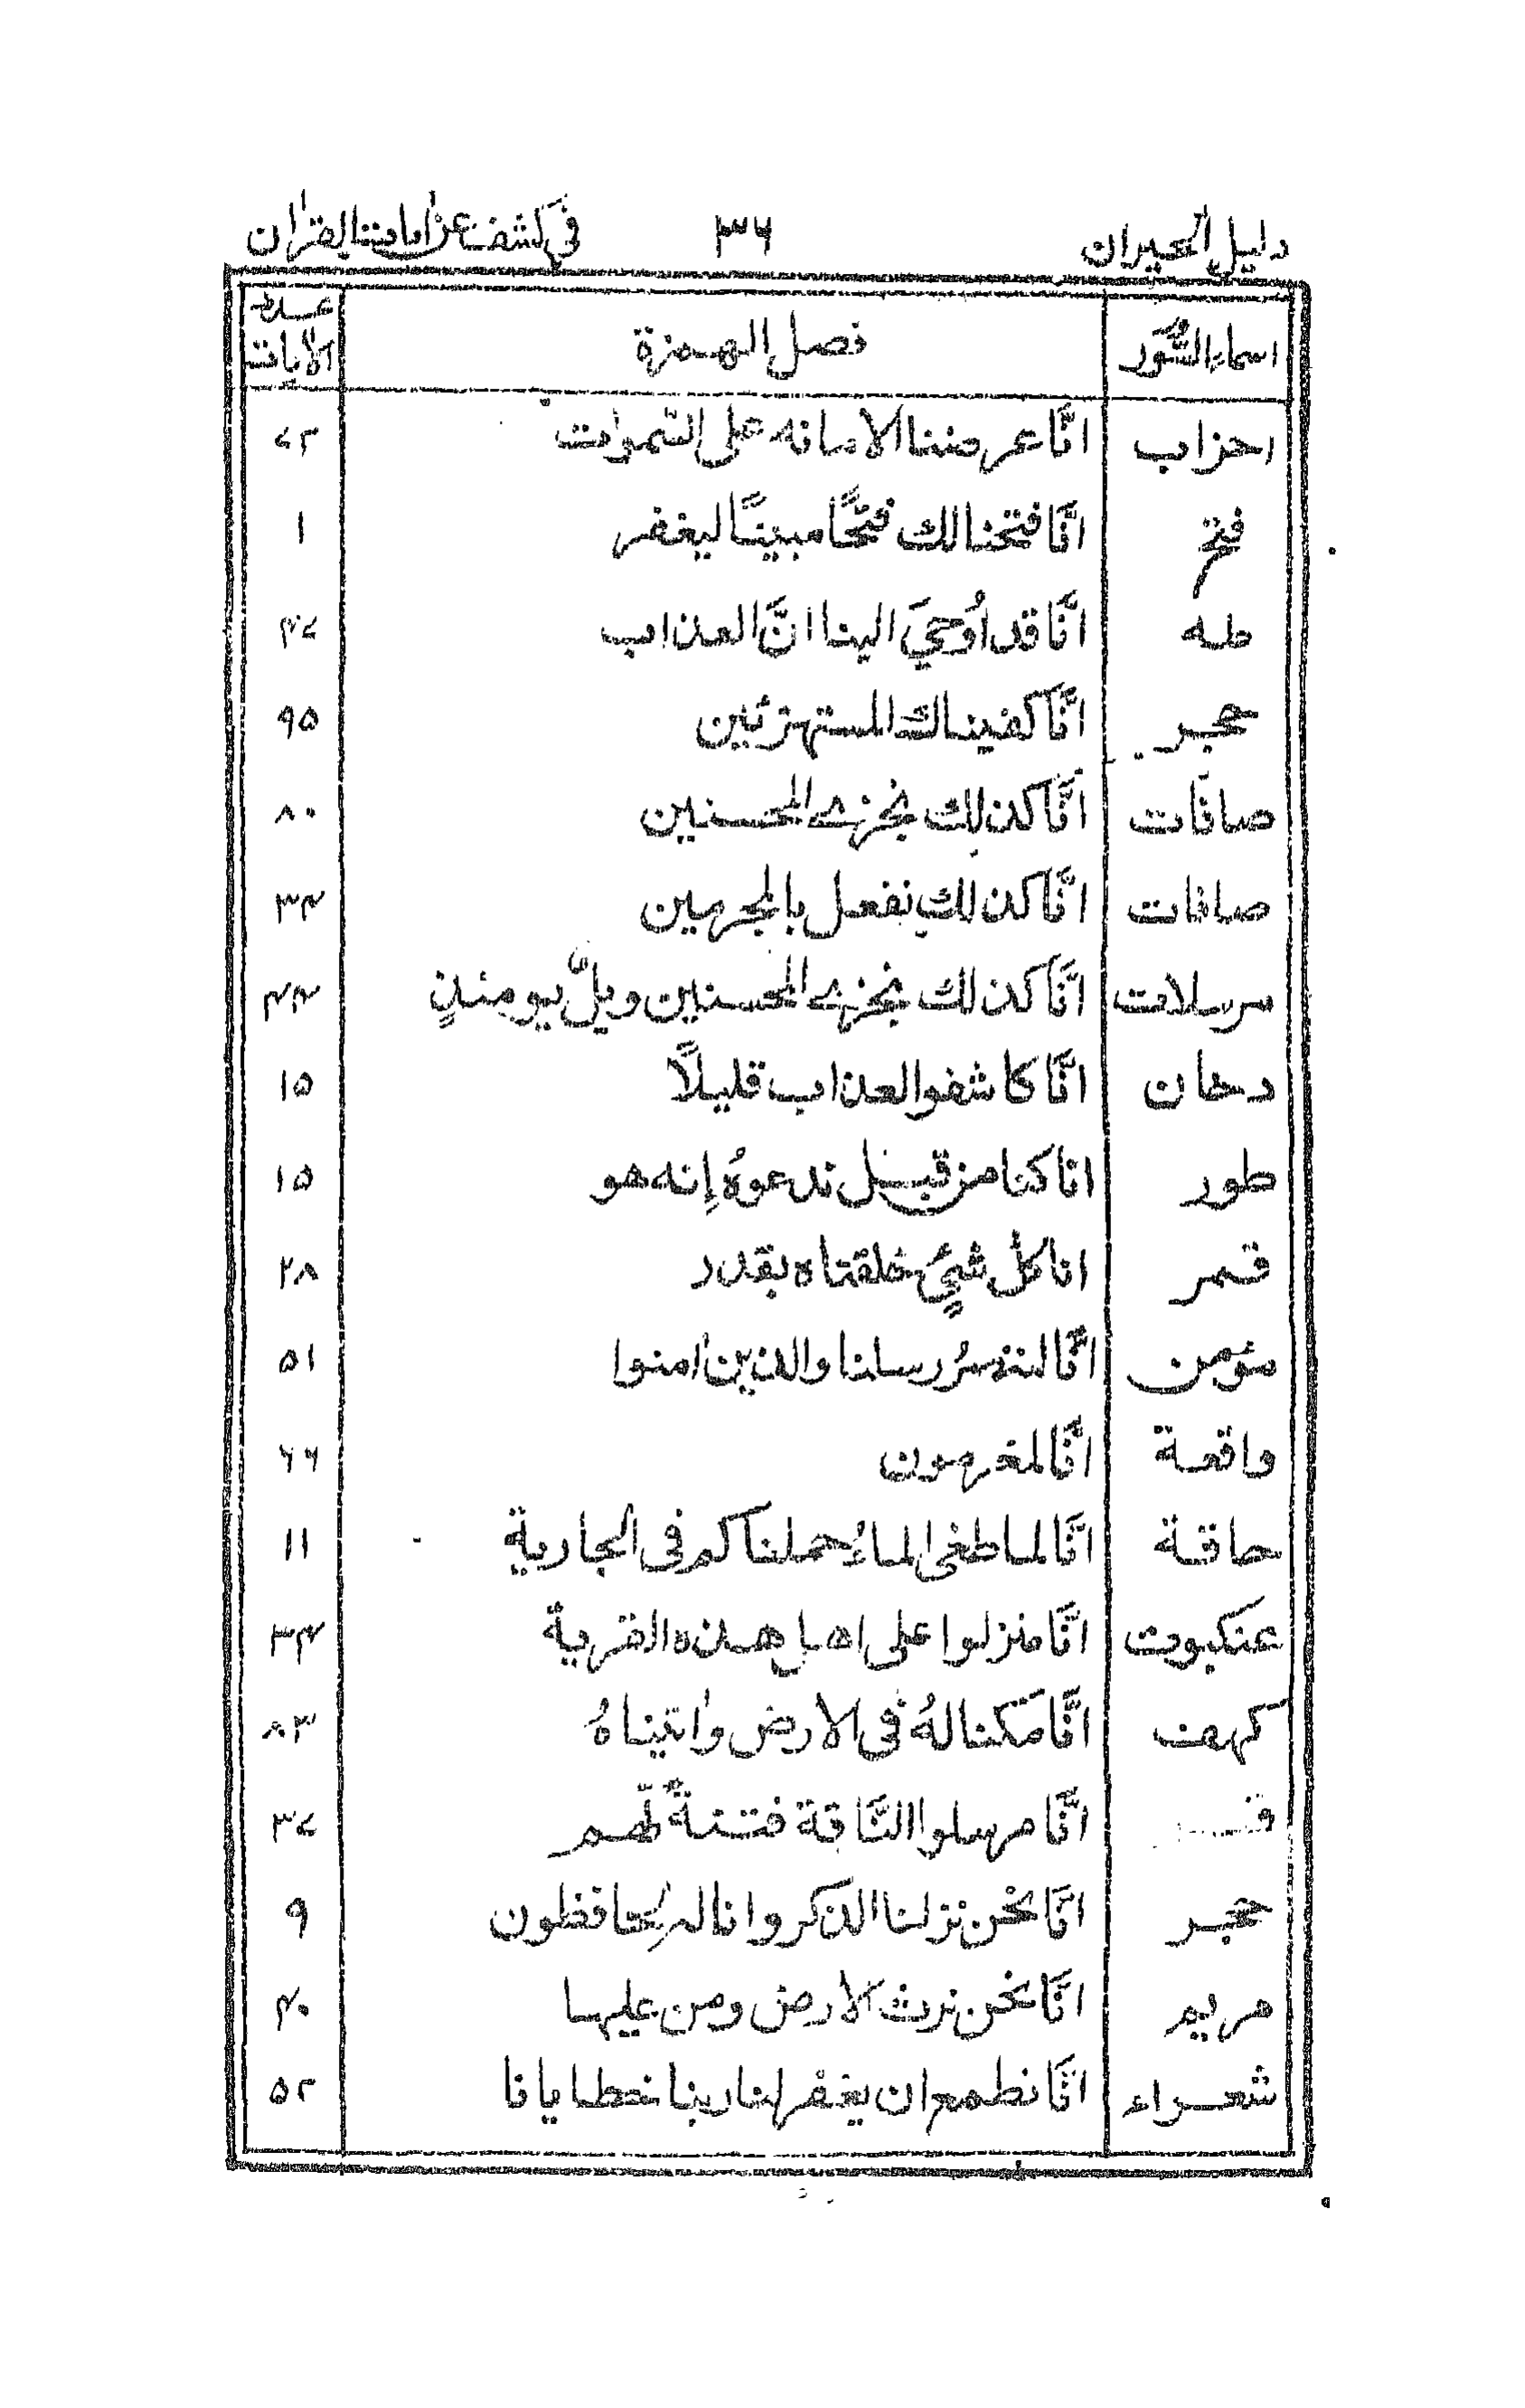 دليل الحيران ٣٦ في كشف عن اٰيات القراٰن
اسماء السُّوَر فصل الهمزة عدد الاٰيات
احزاب انَّا عرضنا الامانه على السّمٰوات ٧٢
فتح انَّا فتحنا لك فتحًا مبينًا ليغفر ١
طه انَّا قد اُوحيَ الينا انَّ العذاب ۴٧
حجر انَّا كفيناك المستهزئين ٩۵
صافات انَّا كذلك نجزى المحسنين ٨٠
صافات انَّا كذلك نفعل بالمجرمين ٣۴
مرسلات انَّا كذلك نجزى المحسنين ويلٌ يومئذٍ ۴۴
دخان انَّا كاشفوا العذاب قليلًا ١۵
طور انا كنا من قبل ندعوهُ إنه هو ١۵
قمر انا كل شيءٍ خلقناه بقدر ٢٨
مؤمن انَّا لننصرُ رسلنا والذين اٰمنوا ۵١
واقعة انَّا لمغرمون ٦٦
حاقة انَّا لما طغى الماءُ حملناكم فى الجارية ١١
عنكبوت انَّا منزلوا على اهل هذه القرية ٣۴
كهف انَّا مَكنا لهُ فى الارض واٰتيناهُ ٨٣
انَّا مرسلوا النَّاقة فتنةً لّهم ٢٧
حجر انَّا نحْن نزلنا الذكر وانا له لحافظون ٩
مريم انَّا نحْن نرث الارض ومن عليها ۴٠
شعراء انَّا نطمع ان يغفر لنا ربنا خطايانا ۵٢